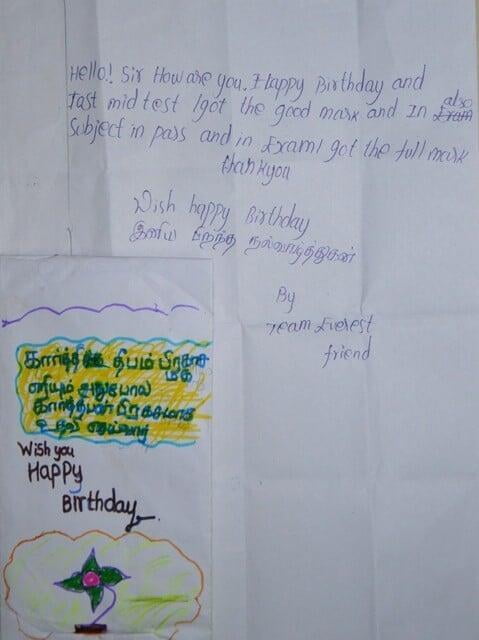 Hello! Sir How are you. Happy Birthday and
Tast mid test I got the good mark and In also
Subject in pass and in Exam I got the full mark
thankyou
Wish happy Birthday
இனிய பிறந்த நல்வாழ்த்துகள்
By
Team Everest
friend
கார்த்திகை தீபம் பிரகாச
மாக
எரியும் அதுபோல
கார்த்திபன் பிரகாசமாக
உதவி செய்வார்
Wish you
Happy
Birthday